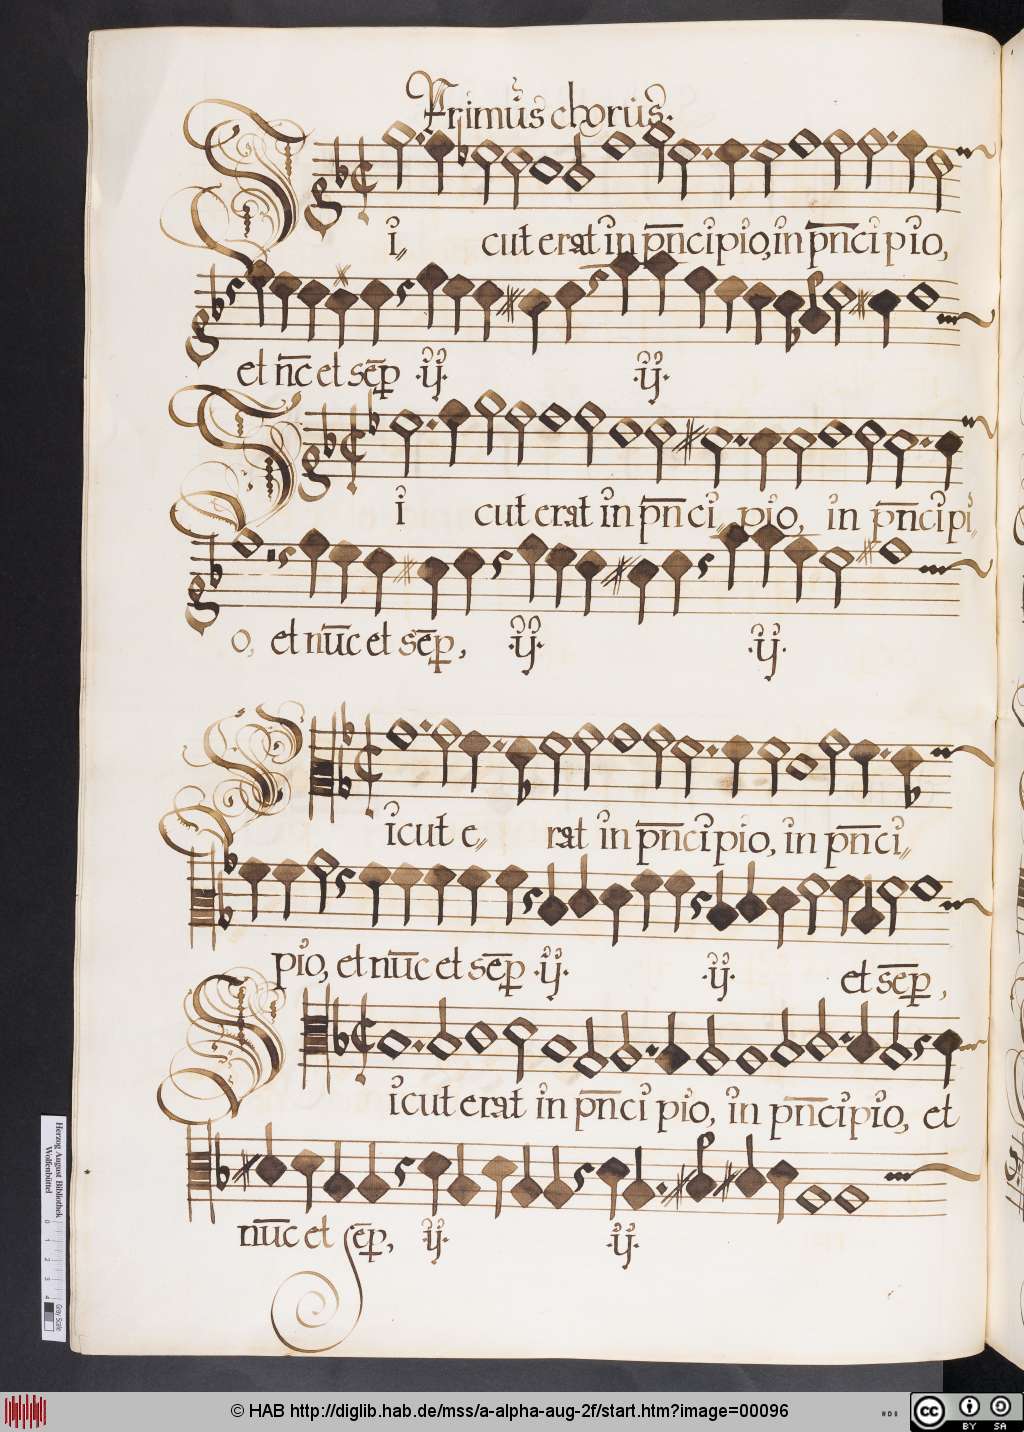 Primus chorus.
Si,, cut erat in pn̄cipio, in pn̄cipio,
et nc̄ et sēp ·ij· ·ij·
Si cut erat in pn̄ci,, pio, in pn̄cipi,,
o, et nūc et sēp, ·ij· ·ij·
Sicut e,, rat in pn̄cipio, in pn̄ci,,
pio, et nūc et sēp ·ij· ·ij· et sēp,
Sicut erat in pn̄cipio, in pn̄cipio, et
nūc et sēp, ·ij· ·ij·
Herzog August Bibliothek
Wolfenbüttel
0 1 2 3 4
Gray Scale
© HAB http://diglib.hab.de/mss/a-alpha-aug-2f/start.htm?image=00096
cc BY SA